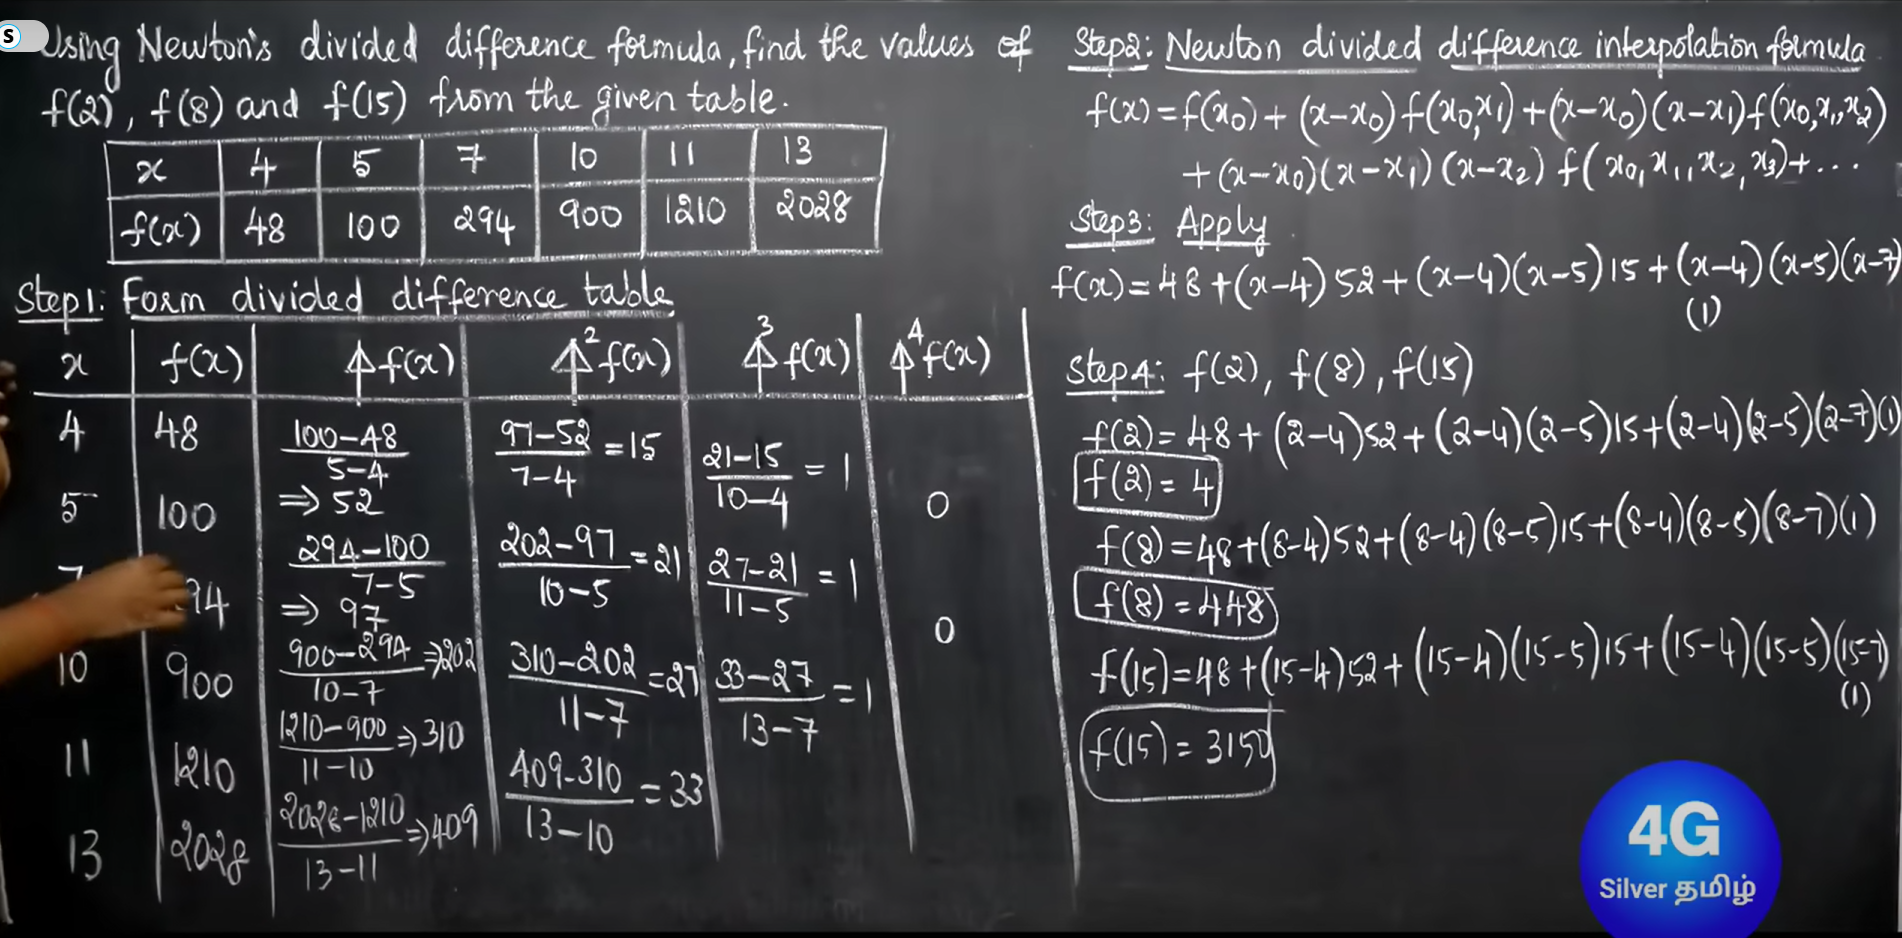 S
Using Newton's divided difference formula, find the values of
f(2), f(8) and f(15) from the given table.
x 4 5 7 10 11 13
f(x) 48 100 294 900 1210 2028
Step1: Form divided difference table
x f(x) ⍋f(x) ⍋²f(x) ⍋³f(x) ⍋⁴f(x)
4 48 (100-48)/(5-4) ⇒ 52 (97-52)/(7-4) = 15 (21-15)/(10-4) = 1 0
5 100 (294-100)/(7-5) ⇒ 97 (202-97)/(10-5) = 21 (27-21)/(11-5) = 1 0
(900-294)/(10-7) ⇒ 202 (310-202)/(11-7) = 27 (33-27)/(13-7) = 1
10 900 (1210-900)/(11-10) ⇒ 310 (409-310)/(13-10) = 33
11 1210 (2028-1210)/(13-11) ⇒ 409
13 2028
Step2: Newton divided difference interpolation formula
f(x) = f(x₀) + (x-x₀) f(x₀,x₁) + (x-x₀)(x-x₁) f(x₀,x₁,x₂)
+ (x-x₀)(x-x₁)(x-x₂) f(x₀,x₁,x₂,x₃) + ...
Step3: Apply
f(x) = 48 + (x-4) 52 + (x-4)(x-5) 15 + (x-4)(x-5)(x-7)
(1)
Step4: f(2), f(8), f(15)
f(2) = 48 + (2-4)52 + (2-4)(2-5)15 + (2-4)(2-5)(2-7)(1)
f(2) = 4
f(8) = 48 + (8-4)52 + (8-4)(8-5)15 + (8-4)(8-5)(8-7)(1)
f(8) = 448
f(15) = 48 + (15-4)52 + (15-4)(15-5)15 + (15-4)(15-5)(15-7)
(1)
f(15) = 3150
4G
Silver தமிழ்